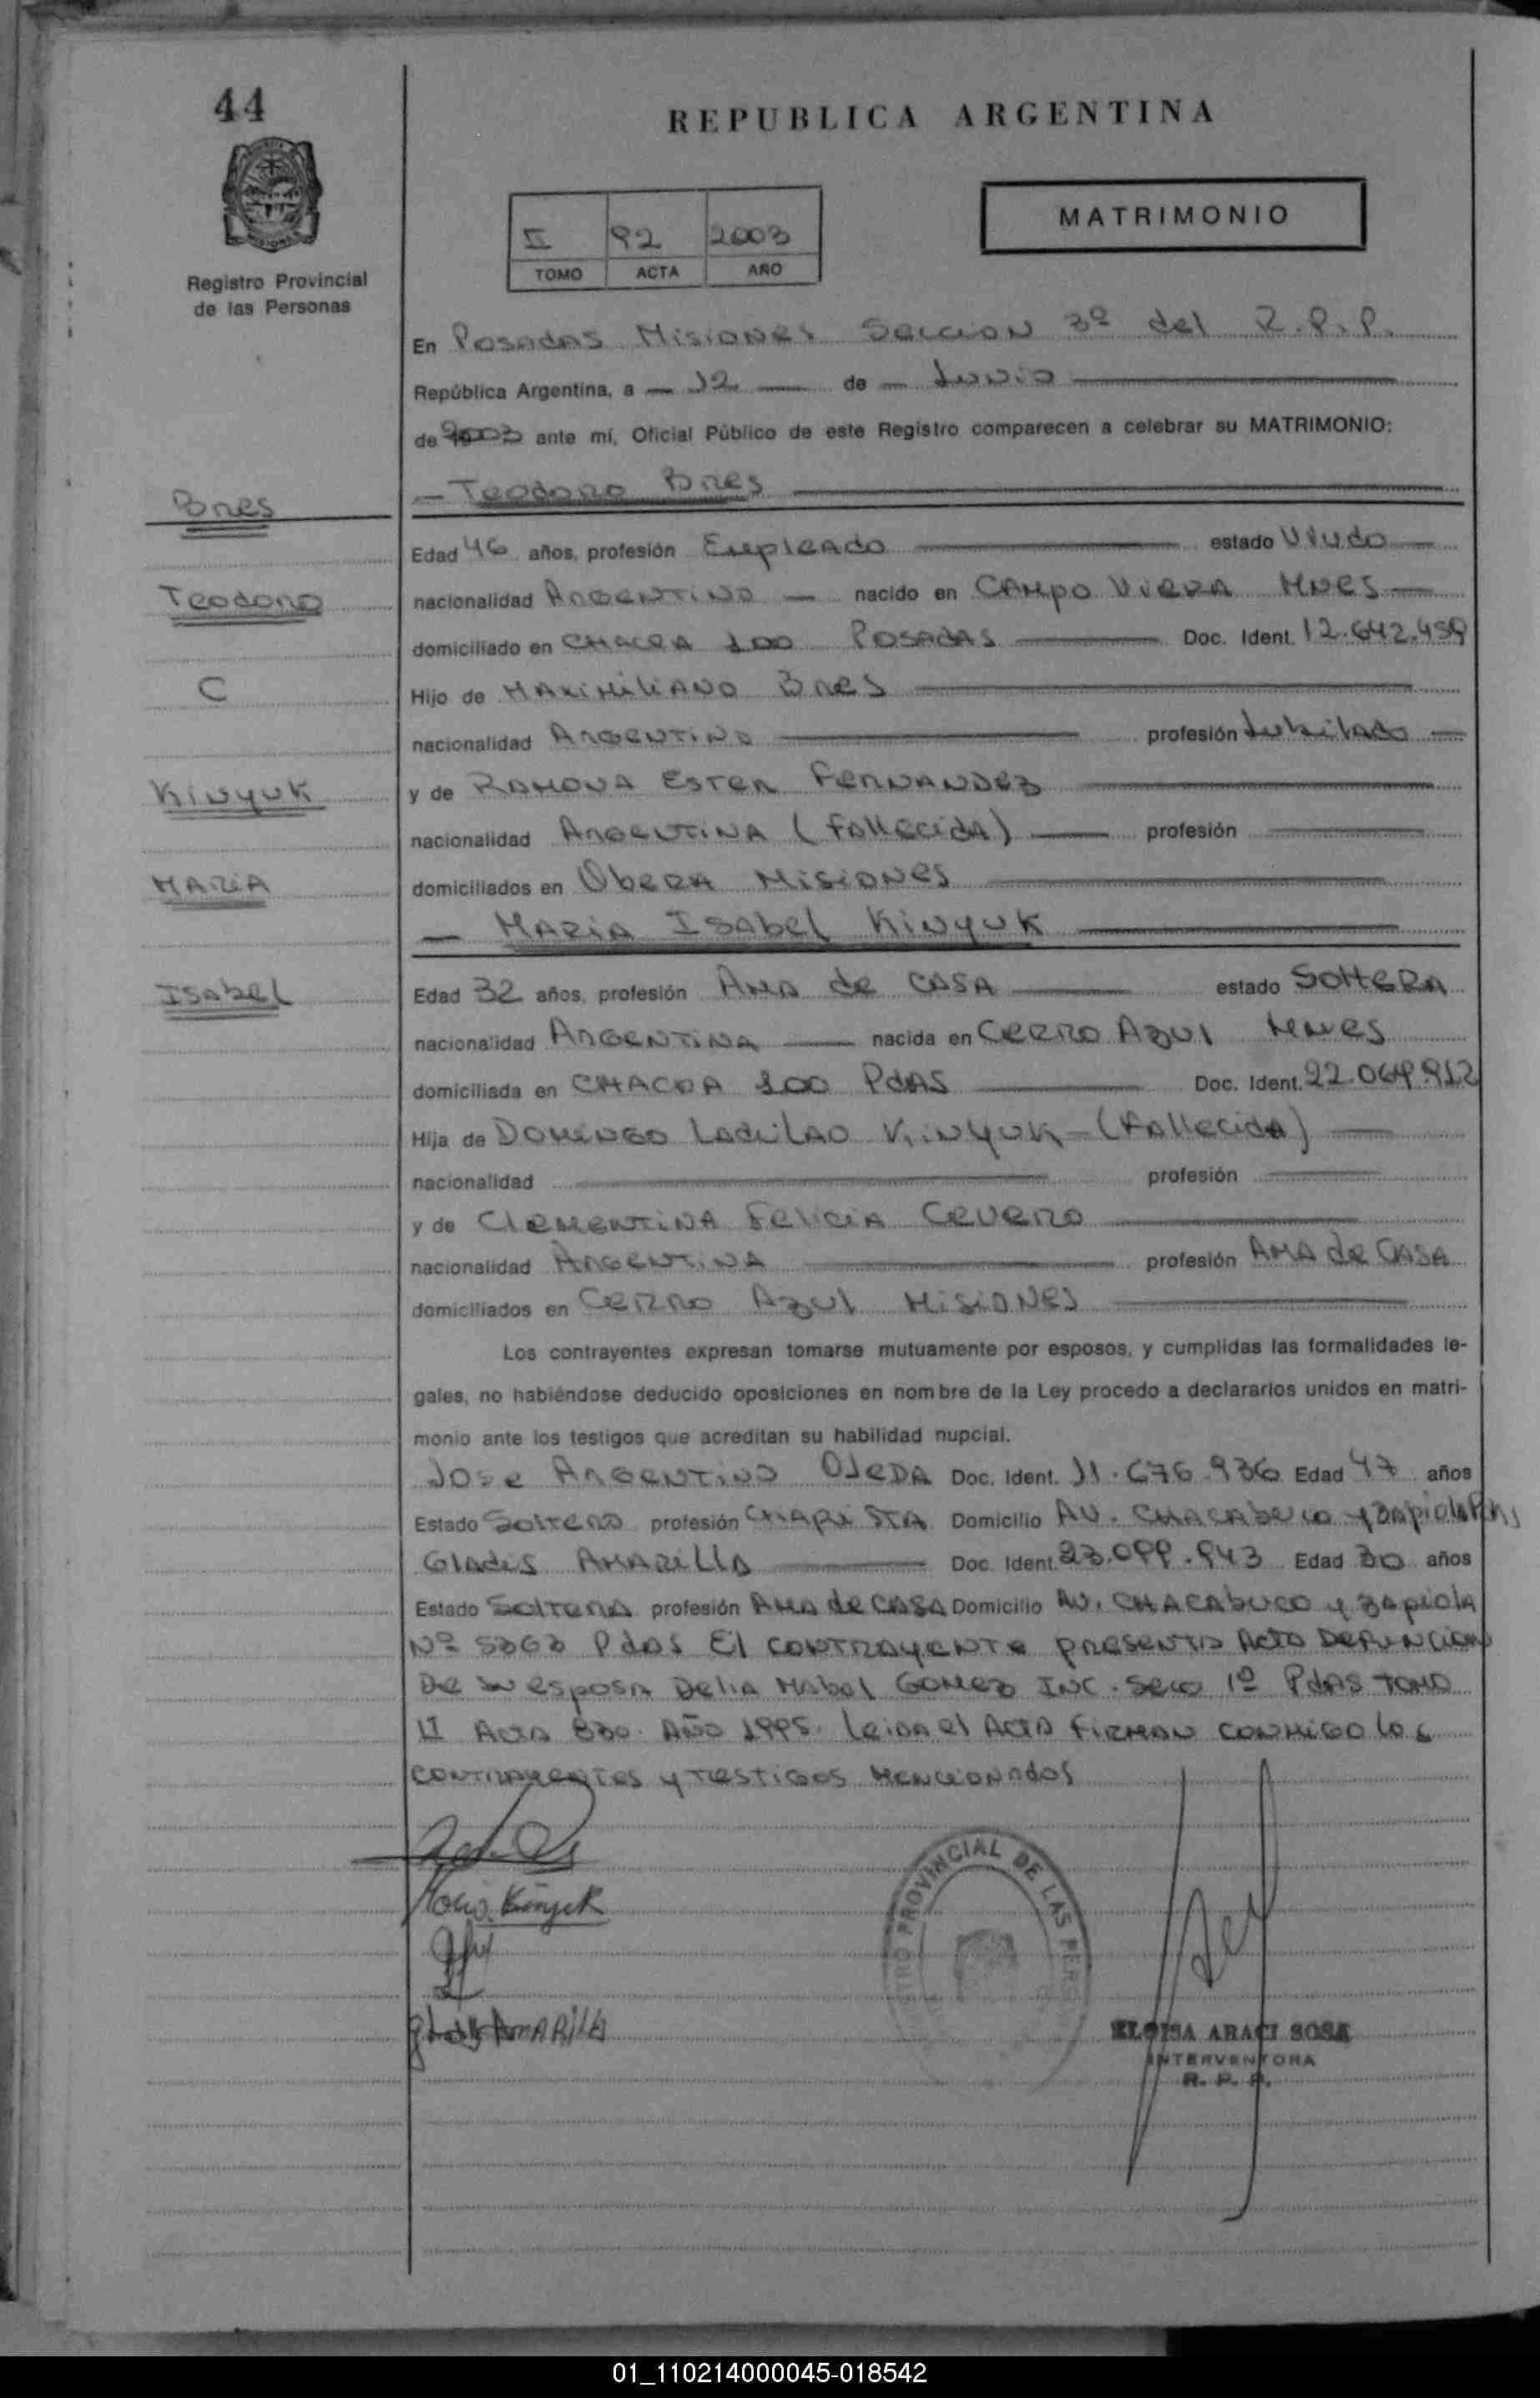 44
REPUBLICA ARGENTINA
MATRIMONIO
II 92 2003
TOMO ACTA AÑO
Registro Provincial
de las Personas
En Posadas Misiones Seccion 3º del R.P.P.
República Argentina, a 12 de Junio
de 2003 ante mí, Oficial Público de este Registro comparecen a celebrar su MATRIMONIO:
Bres
Teodoro
C
Kinyuk
MARIA
ISABEL
Teodoro Bres
Edad 46 años, profesión Empleado estado Viudo
nacionalidad ARGENTINO nacido en CAMPO VIERA MNES
domiciliado en CHACRA 100 POSADAS Doc. Ident. 12.642.459
Hijo de MAXIMILIANO Bres
nacionalidad ARGENTINO profesión Jubilado
y de RAMONA ESTER FERNANDEZ
nacionalidad ARGENTINA (FALLECIDA) profesión
domiciliados en OBERA MISIONES
MARIA ISAbel KiNyuK
Edad 32 años, profesión AMA de CASA estado SOLTERA
nacionalidad ARGENTINA nacida en CERRO AZUL MNES
domiciliada en CHACRA 100 PdAS Doc. Ident. 22.064.912
Hija de DOMINGO LADILAO KINYUK (FALLECIDO)
nacionalidad profesión
y de CLEMENTINA FELICIA CEVERO
nacionalidad ARGENTINA profesión AMA de CASA
domiciliados en CERRO AZUL MISIONES
Los contrayentes expresan tomarse mutuamente por esposos, y cumplidas las formalidades le-
gales, no habiéndose deducido oposiciones en nombre de la Ley procedo a declararlos unidos en matri-
monio ante los testigos que acreditan su habilidad nupcial.
JOSE ARGENTINO OJEDA Doc. Ident. 11.676.936 Edad 47 años
Estado SOLTERO profesión CHAPISTA Domicilio AV. CHACABUCO y ZAPIOLA
GLADIS AMARILLA Doc. Ident. 23.099.943 Edad 30 años
Estado SOLTERA profesión AMA de CASA Domicilio AV. CHACABUCO y ZAPIOLA
Nº 5363 PdAS El CONTRAYENTE PRESENTA ACTA DEFUNCION
DE su esposa DELIA MABEL GOMEZ INC. Secc 1º PdAS TOMO
II ACTA 830. AÑO 1995. Leida el ACTA FIRMAN CONMIGO los
CONTRAYENTES y TESTIGOS MENCIONADOS
Maria Kinyuk
Gladys AMARILLA
PROVINCIAL DE LAS PERS
ELOISA ARACI SOSA
INTERVENTORA
R. P. P.
01_110214000045-018542